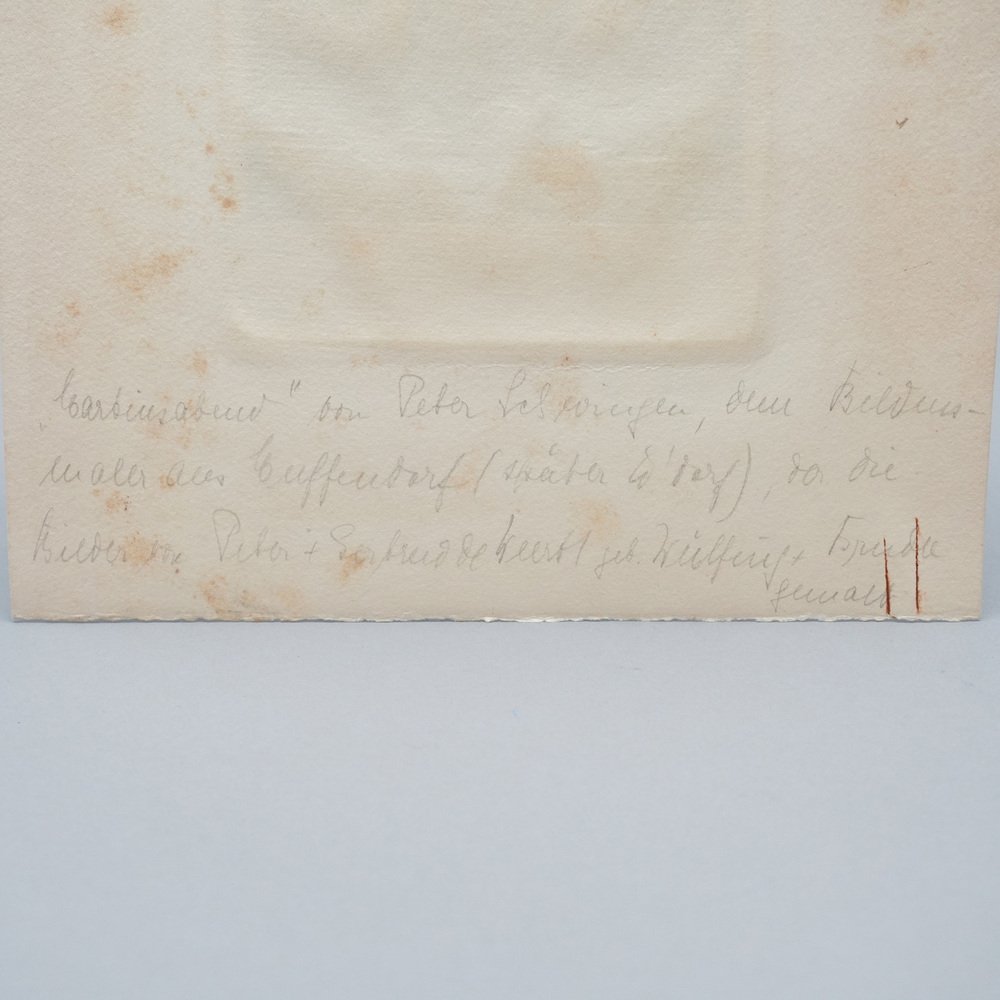 „Martinsabend" von Peter Schwingen, dem Bildnis-
maler aus Muffendorf (später D'dorf), der die
Bilder von Peter + geb. Wülfing +
gemalt